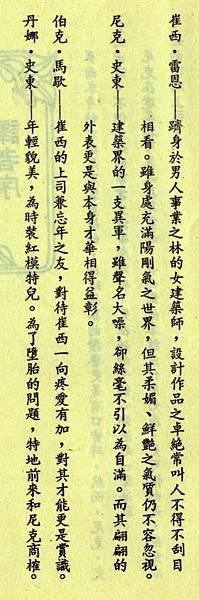 崔西·雷恩——躋身於男人事業之林的女建築師，設計作品之卓絶常叫人不得不刮目
相看。雖身處充滿陽剛氣之世界，但其柔媚、鮮艷之氣質仍不容忽視。
尼克·史東——建築界的一支異軍，雖聲名大噪，卻絲毫不引以為自滿。而其翩翩的
外表更是與本身才華相得益彰。
伯克·馬歇——崔西的上司兼忘年之友，對待崔西一向疼愛有加，對其才能更是賞識。
丹娜·史東——年輕貌美，為時裝紅模特兒。為了墮胎的問題，特地前來和尼克商榷。